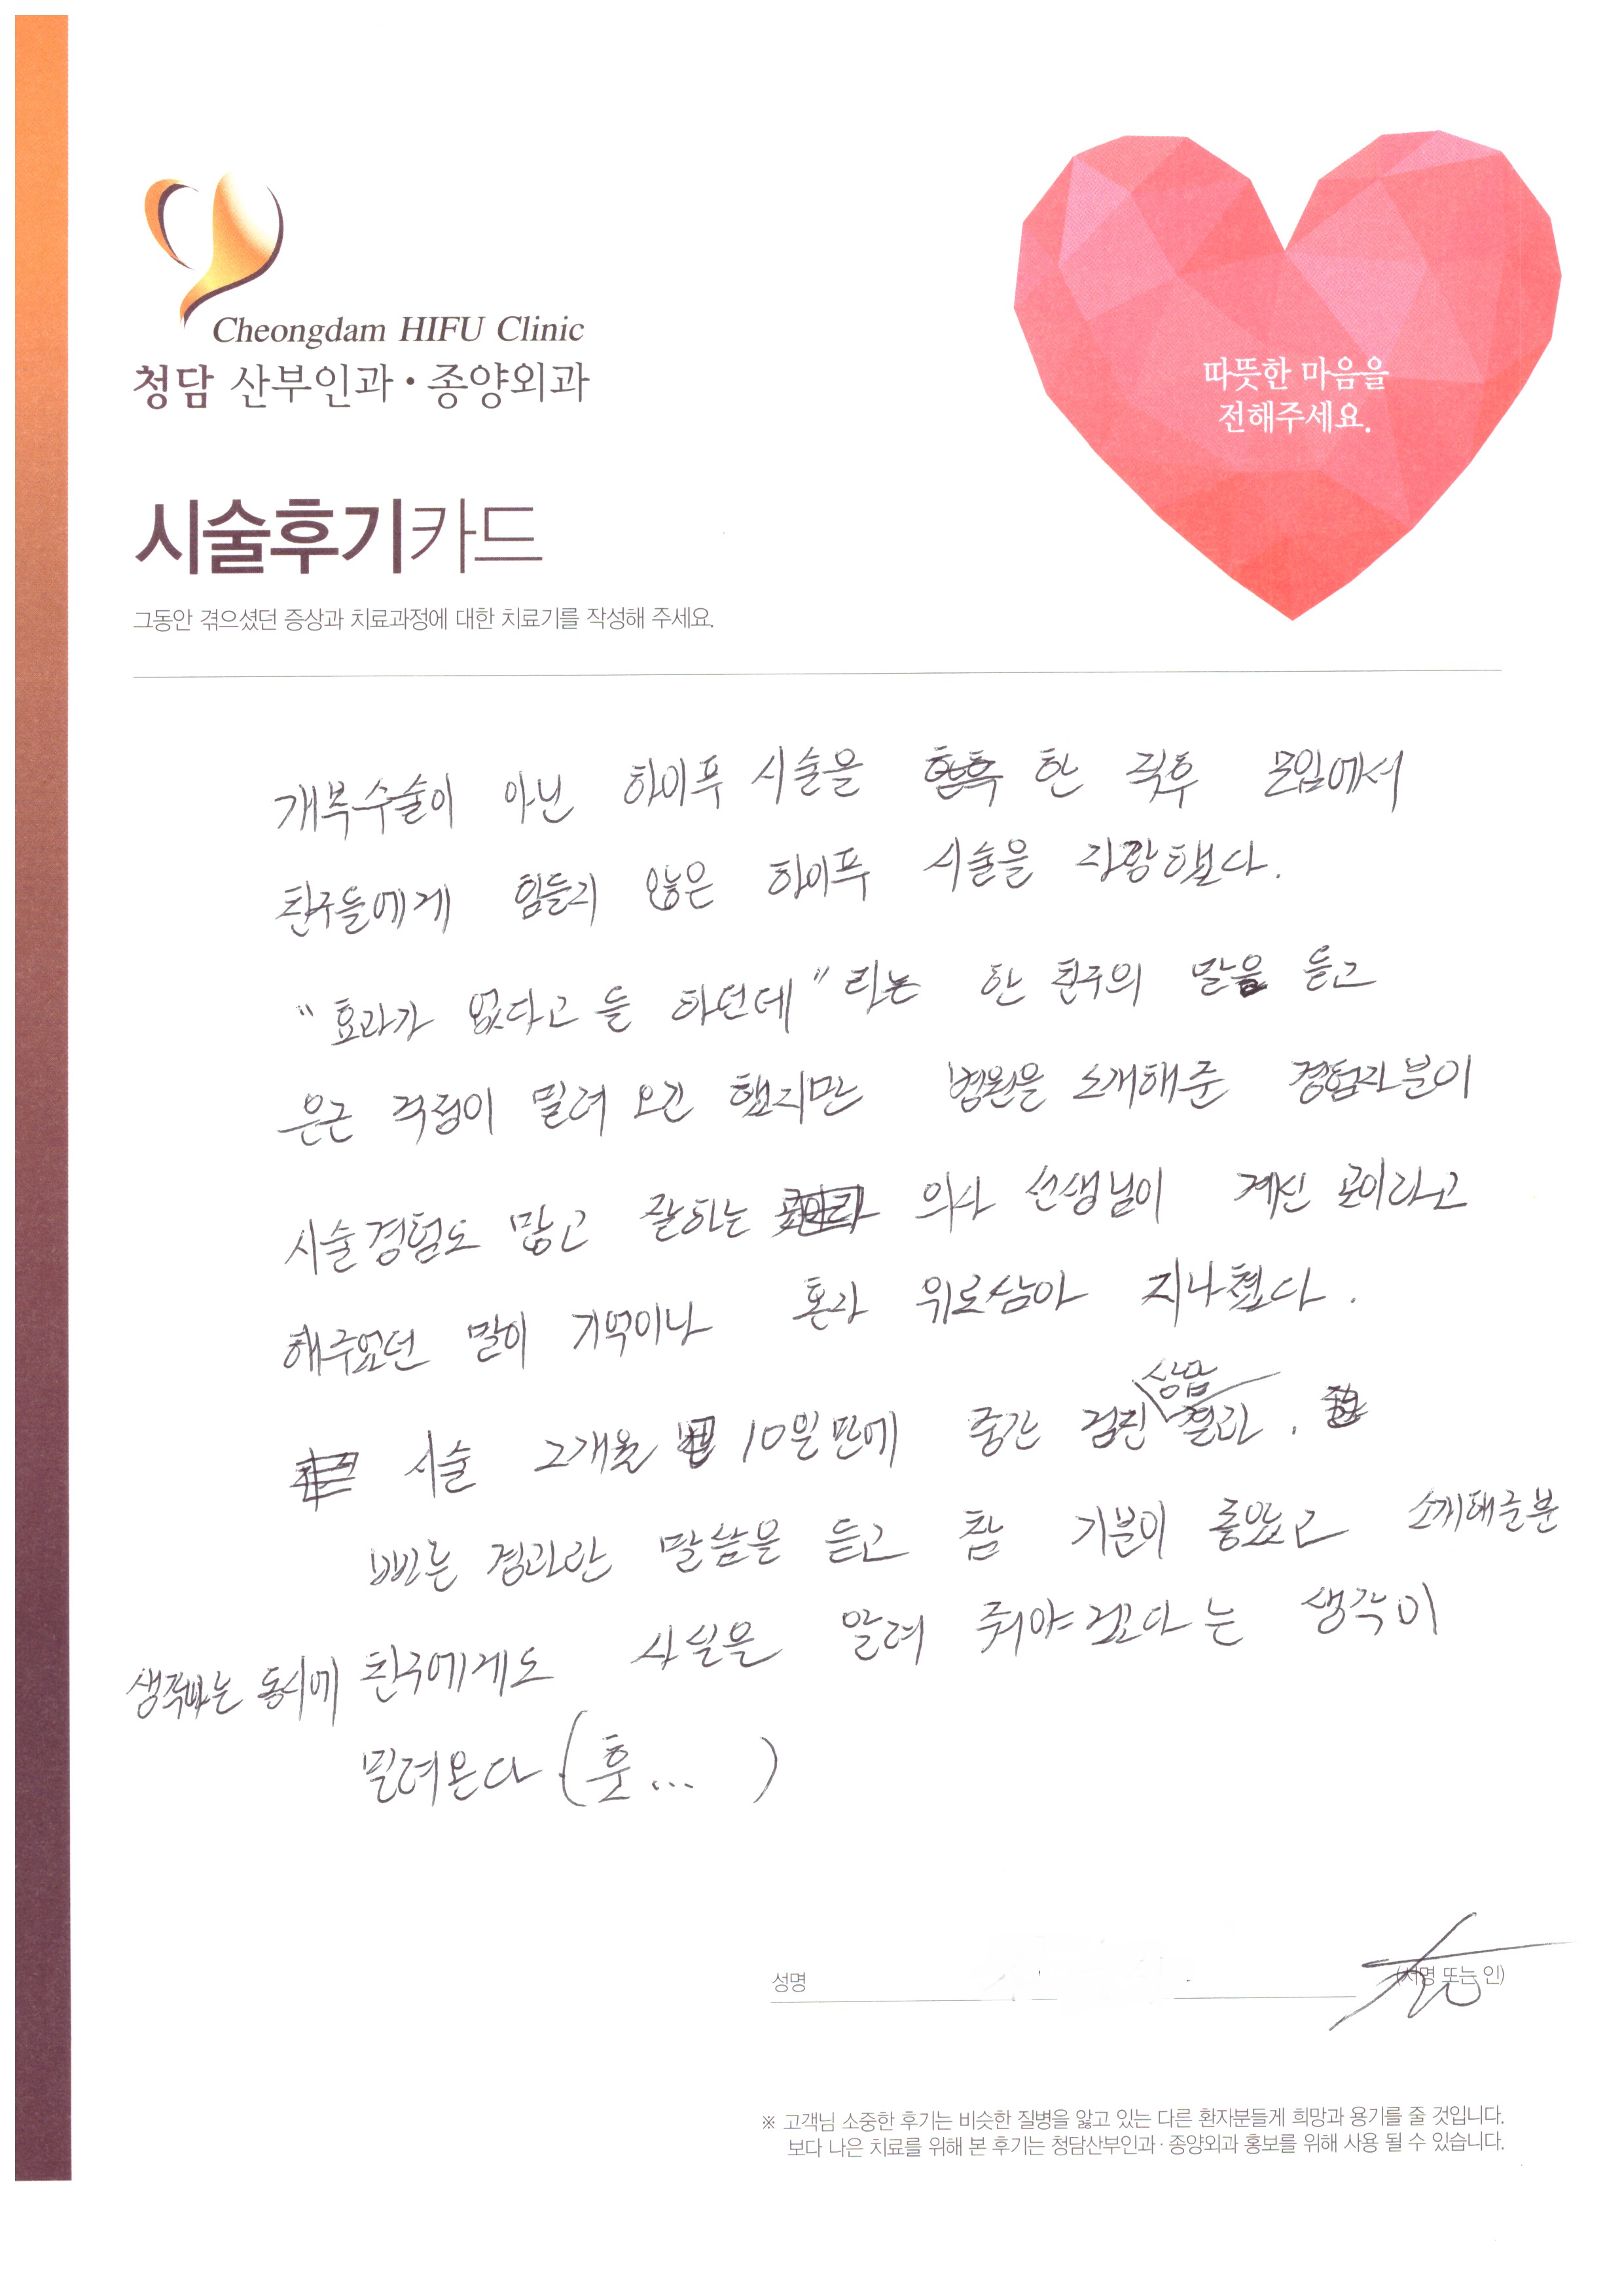 Cheongdam HIFU Clinic
청담 산부인과·종양외과
따뜻한 마음을
전해주세요.
시술후기카드
그동안 겪으셨던 증상과 치료과정에 대한 치료기를 작성해 주세요.
개복수술이 아닌 하이푸 시술을 한 직후 모임에서
친구들에게 힘들지 않은 하이푸 시술을 자랑했다.
"효과가 없다고들 하던데" 라는 한 친구의 말을 듣고
은근 걱정이 밀려 오긴 했지만 병원을 소개해준 경험자분이
시술경험도 많고 잘하는 의사 선생님이 계신 곳이라고
해주었던 말이 기억이나 혼자 위로삼아 지나쳤다.
상담
시술 2개월 10일만에 중간 검진 결과.
빠른 경과란 말씀을 듣고 참 기분이 좋았고 소개해준분
생각나는 동시에 친구에게도 사실을 알려 줘야겠다는 생각이
밀려온다 (훗... )
성명
(서명 또는 인)
※ 고객님 소중한 후기는 비슷한 질병을 앓고 있는 다른 환자분들게 희망과 용기를 줄 것입니다.
보다 나은 치료를 위해 본 후기는 청담산부인과·종양외과 홍보를 위해 사용 될 수 있습니다.